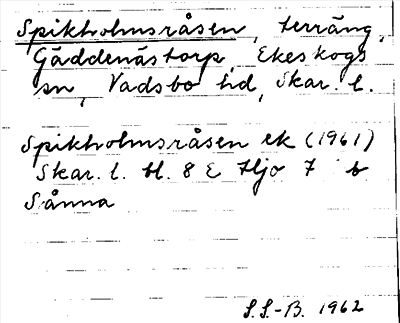 Spikholmsråsen, terräng,
Gäddenästorp, Ekeskogs
sn, Vadsbo hd, Skar. l.
Spikholmsråsen ek (1961)
Skar. l. bl. 8 E Hjo 7 b
Sånna
S.S.-B. 1962